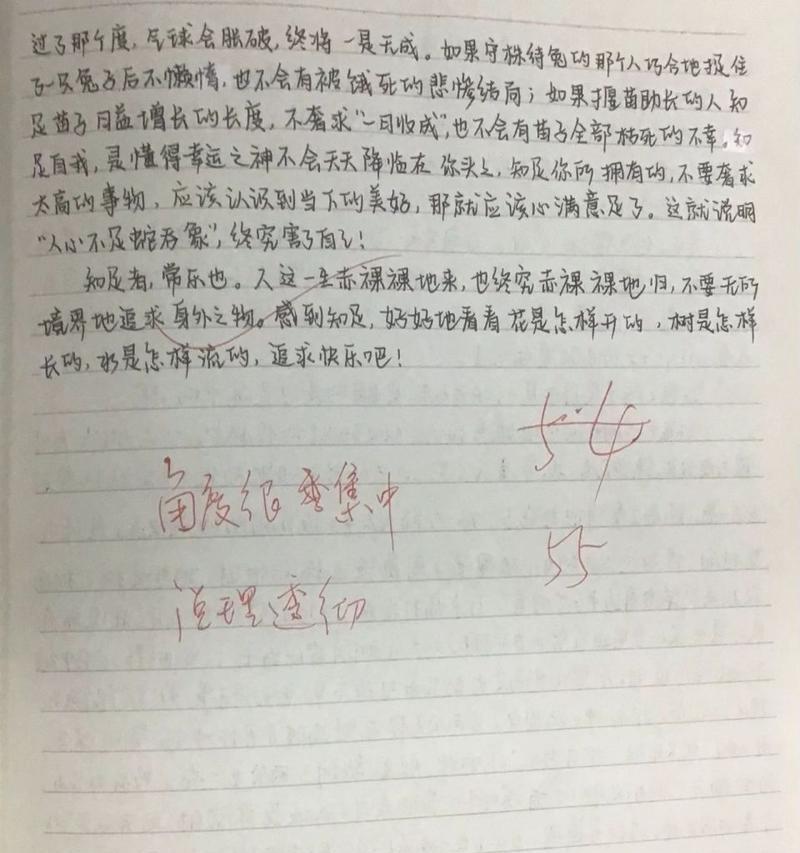 过了那个度，气球会胀破，终将一是无成。如果守株待兔的那个人巧合地捉住
了一只兔子后不懒惰，也不会有被饿死的悲惨结局；如果揠苗助长的人知
足苗子日益增长的长度，不奢求“一日收成”，也不会有苗子全部枯死的不幸。知
足自我，是懂得幸运之神不会天天降临在你头上，知足你所拥有的，不要奢求
太高的事物，应该认识到当下的美好，那就应该心满意足了。这就说明
“人心不足蛇吞象”，终究害了自己！
知足者，常乐也。人这一生赤裸裸地来，也终究赤裸裸地归，不要无所
境界地追求身外之物。感到知足，好好地看看花是怎样开的，树是怎样
长的，水是怎样流的，追求快乐吧！
54
角度很集中
55
说理透彻